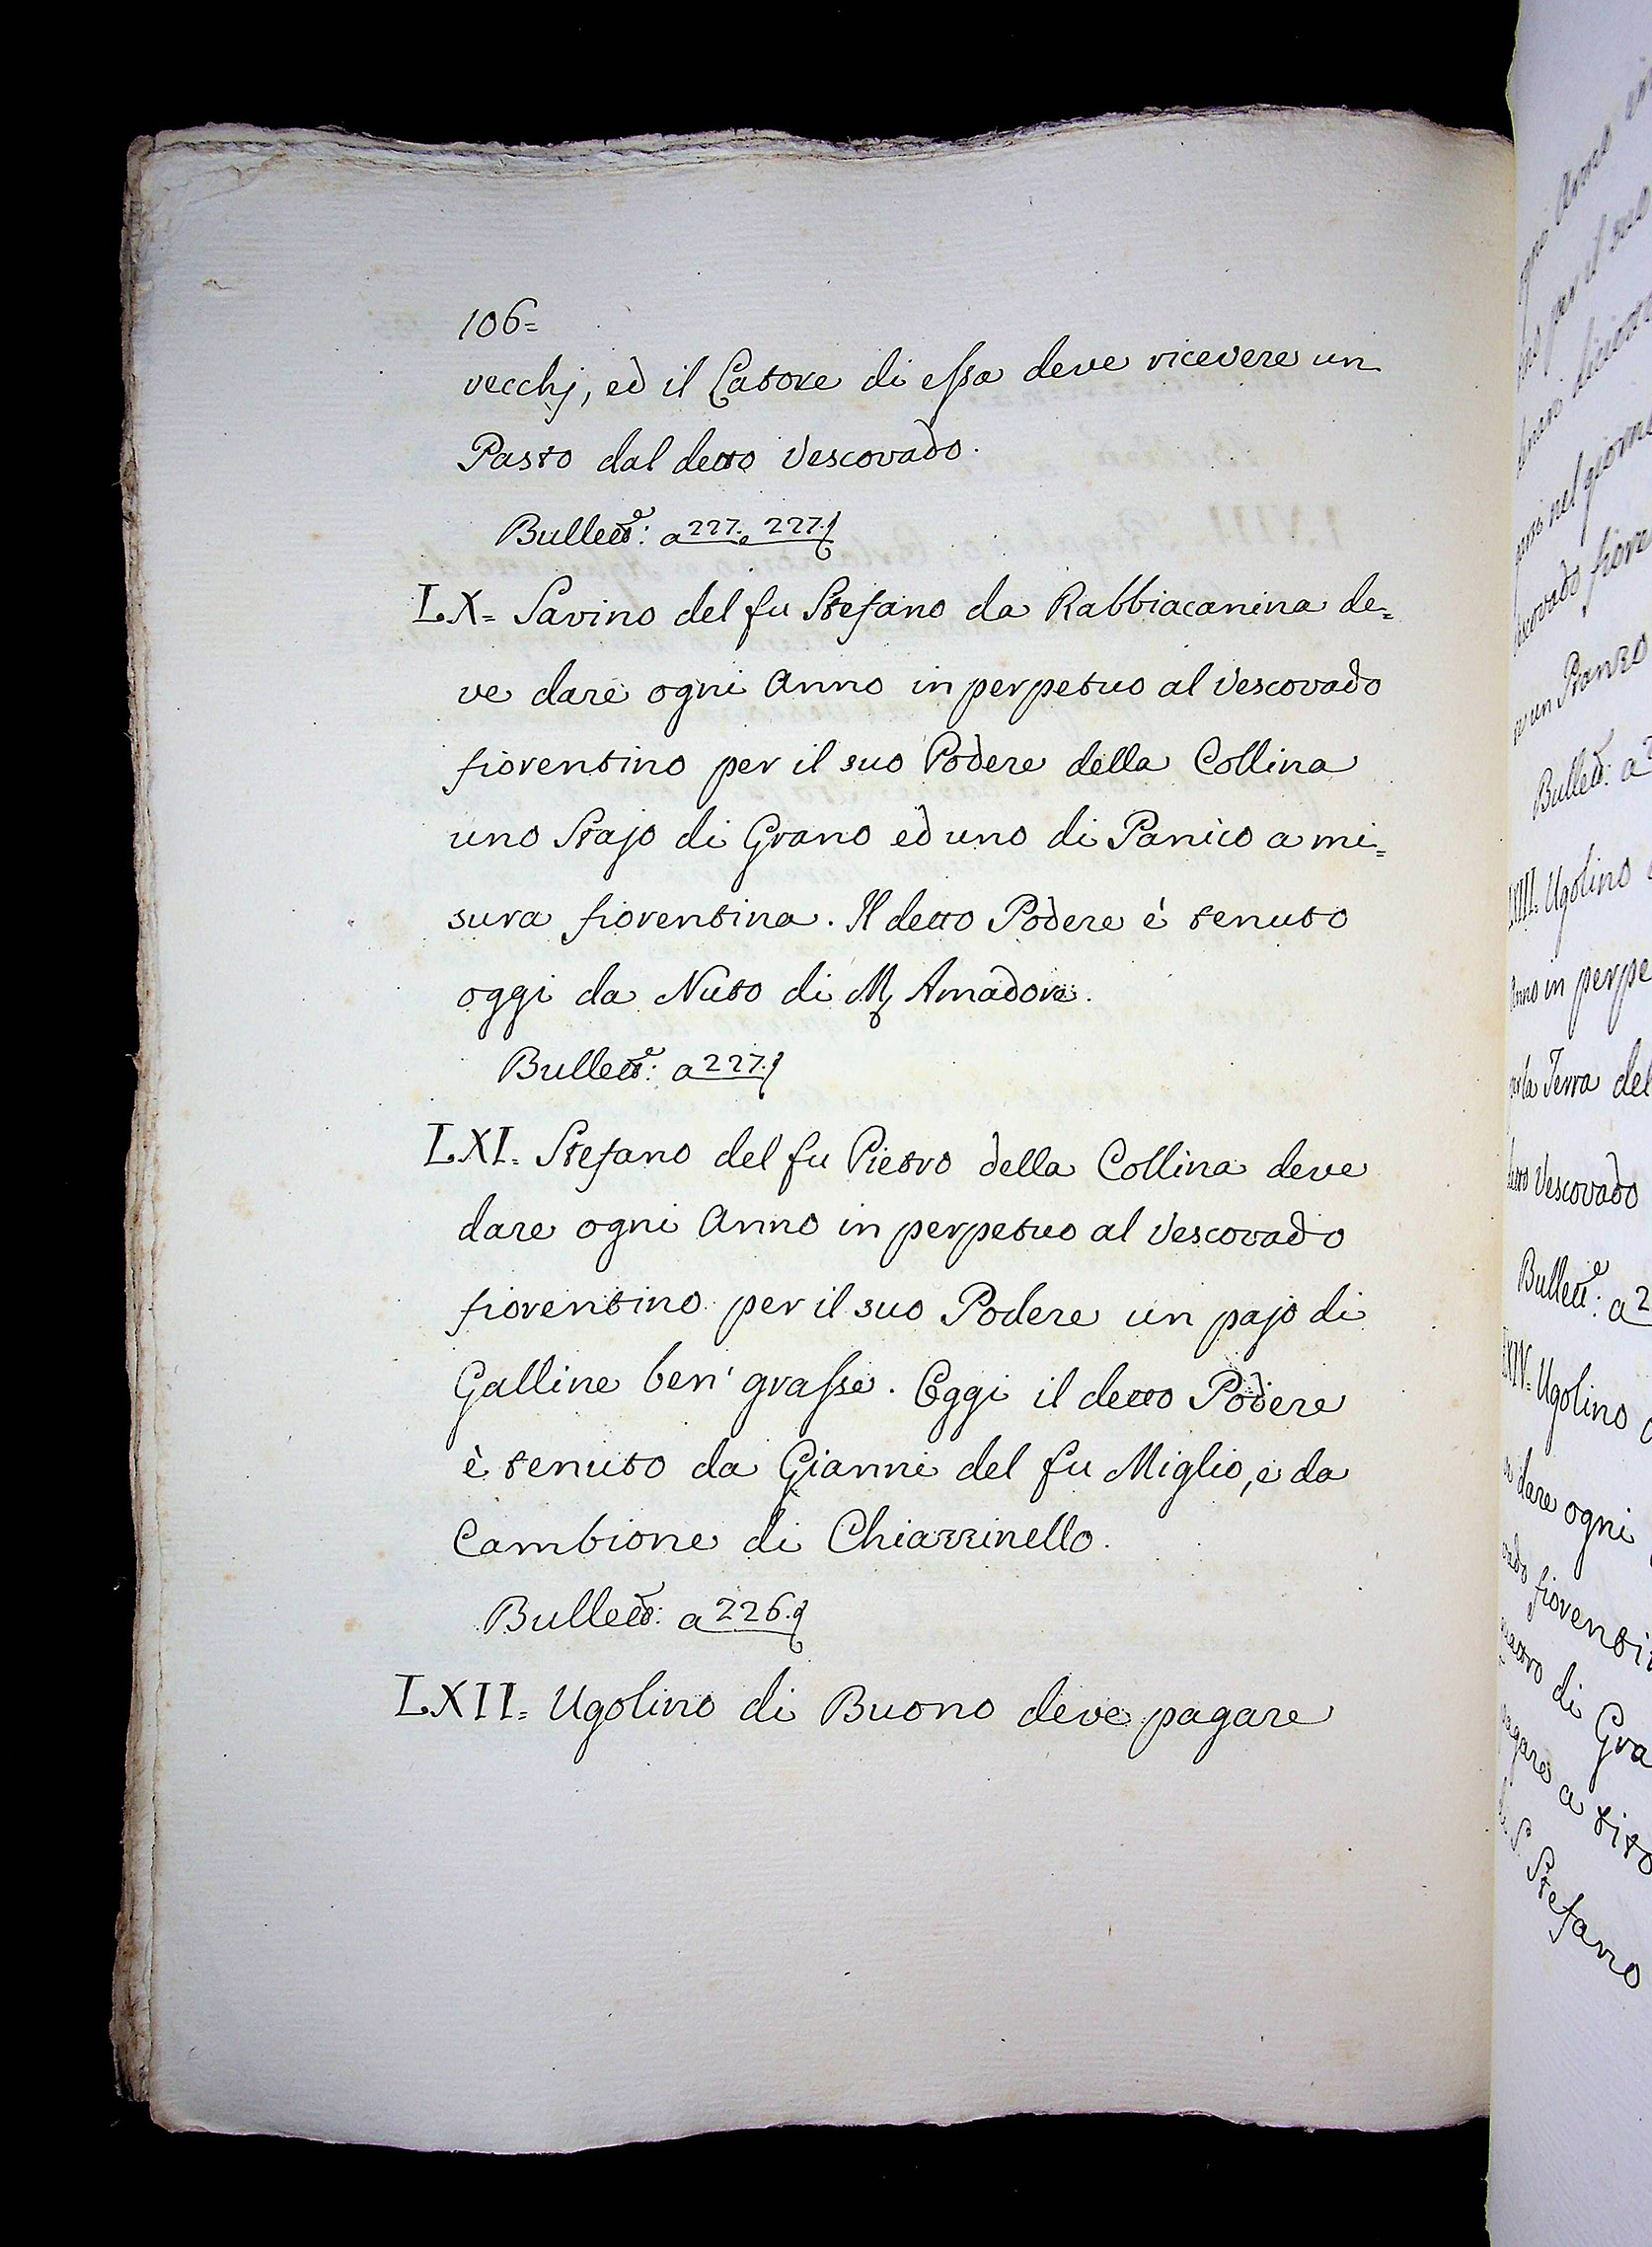 106=
vecchj, ed il Latore di essa deve ricevere un
Pasto dal detto Vescovado.
Bullett.e: a 227. e 227.
LX= Savino del fu Stefano da Rabbiacanina de=
ve dare ogni Anno in perpetuo al Vescovado
fiorentino per il suo Podere della Collina
uno Stajo di Grano ed uno di Panico a mi=
sura fiorentina. Il detto Podere è tenuto
oggi da Nuto di M Amadore.
Bullett.e: a 227.
LXI. Stefano del fu Pietro della Collina deve
dare ogni Anno in perpetuo al Vescovado
fiorentino per il suo Podere un pajo di
Galline ben' grasse. Oggi il detto Podere
è tenuto da Gianni del fu Miglio, e da
Cambione di Chiarrinello.
Bullett: a 226.
LXII= Ugolino di Buono deve pagare
ogni Anno
per il suo
nel giorno
un Pranzo
Bullett: a
LXIII. Ugolino
Anno in perpe
la Terra del
detto Vescovado
Bullett.e: a 2
LXIV= Ugolino
dare ogni
fiorenti
di Gra
pagare a
S. Stefano